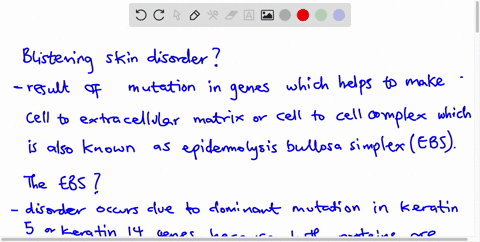 Blistering skin disorder?
- result of mutation in genes which helps to make
cell to extracellular matrix or cell to cell complex which
is also known as epidermolysis bullosa simplex (EBS).
The EBS?
- disorder occurs due to dominant mutation in keratin
5 or keratin 14 genes because proteins are